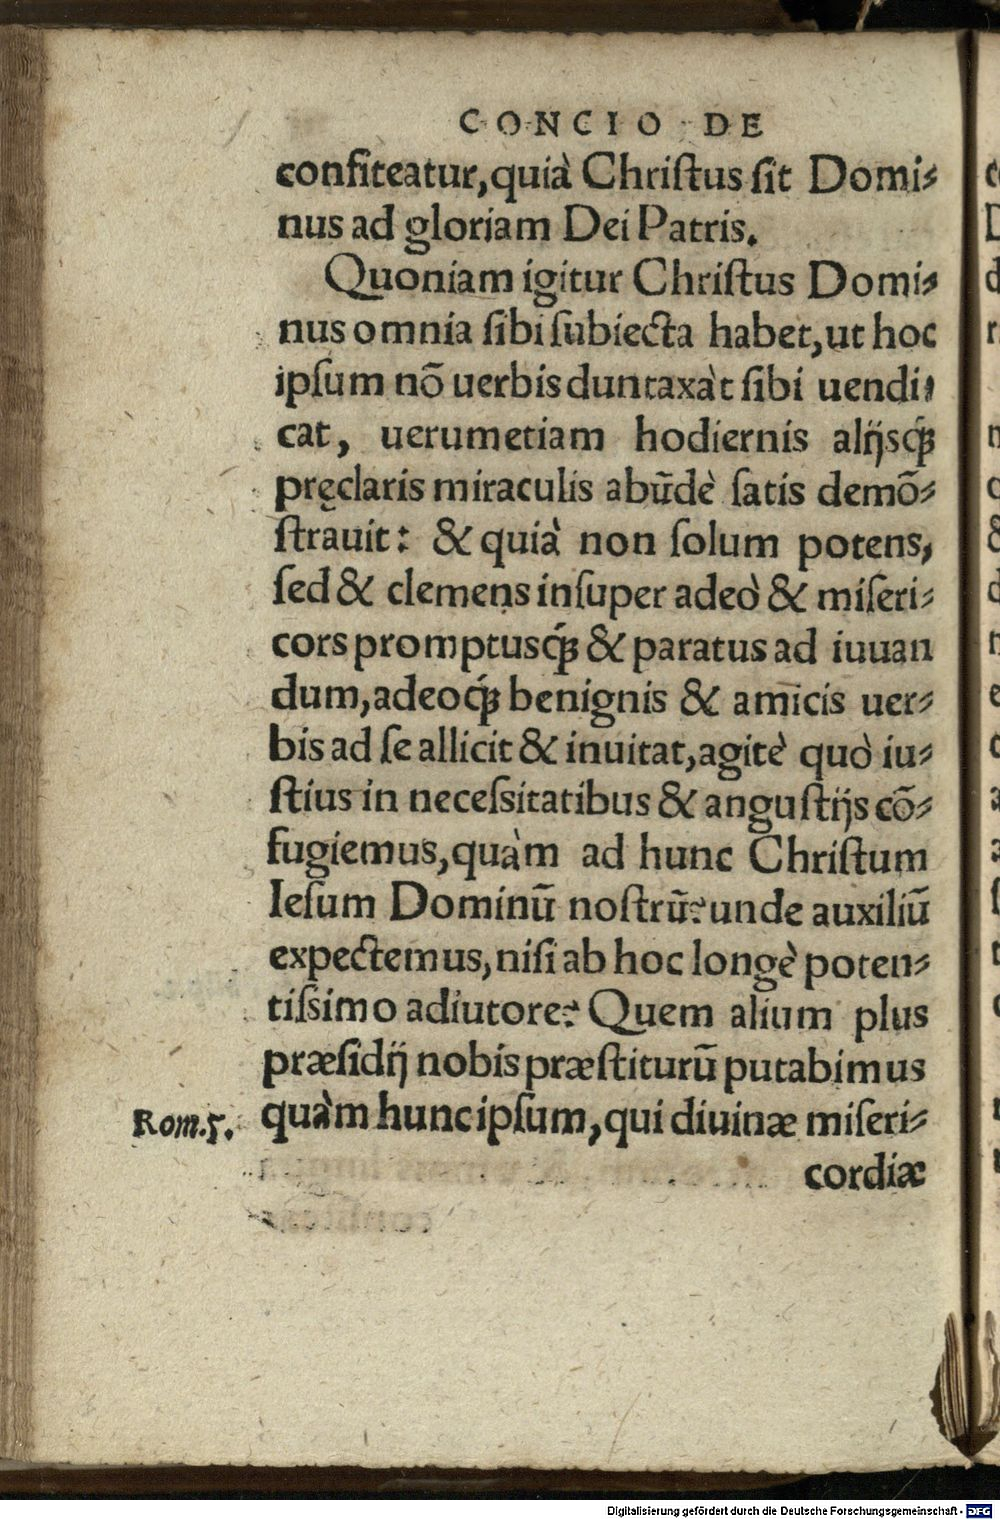 CONCIO DE
confiteatur,quià Chriſtus ſit Domi⸗
nus ad gloriam Dei Patris.
Quoniam igitur Chriſtus Domi⸗
nus omnia ſibi ſubiecta habet,ut hoc
ipſum nõ uerbis duntaxàt ſibi uendi⸗
cat, uerumetiam hodiernis alijsq́ꝫ
pręclaris miraculis abũdè ſatis demõ⸗
ſtrauit: & quià non ſolum potens,
ſed & clemens inſuper adeò & miſeri⸗
cors promptusq́ꝫ & paratus ad iuuan
dum,adeoq́ꝫ benignis & amicis uer⸗
bis ad ſe allicit & inuitat,agitè quò iu⸗
ſtius in neceſsitatibus & anguſtijs cõ⸗
fugiemus,quàm ad hunc Chriſtum
Ieſum Dominũ noſtrũ? unde auxiliũ
expectemus,niſi ab hoc longè poten⸗
tiſsimo adiutore? Quem alium plus
præſidij nobis præſtiturũ putabimus
Rom.5. quàm hunc ipſum,qui diuinæ miſeri⸗
cordiæ
Digitalisierung gefördert durch die Deutsche Forschungsgemeinschaft - DFG